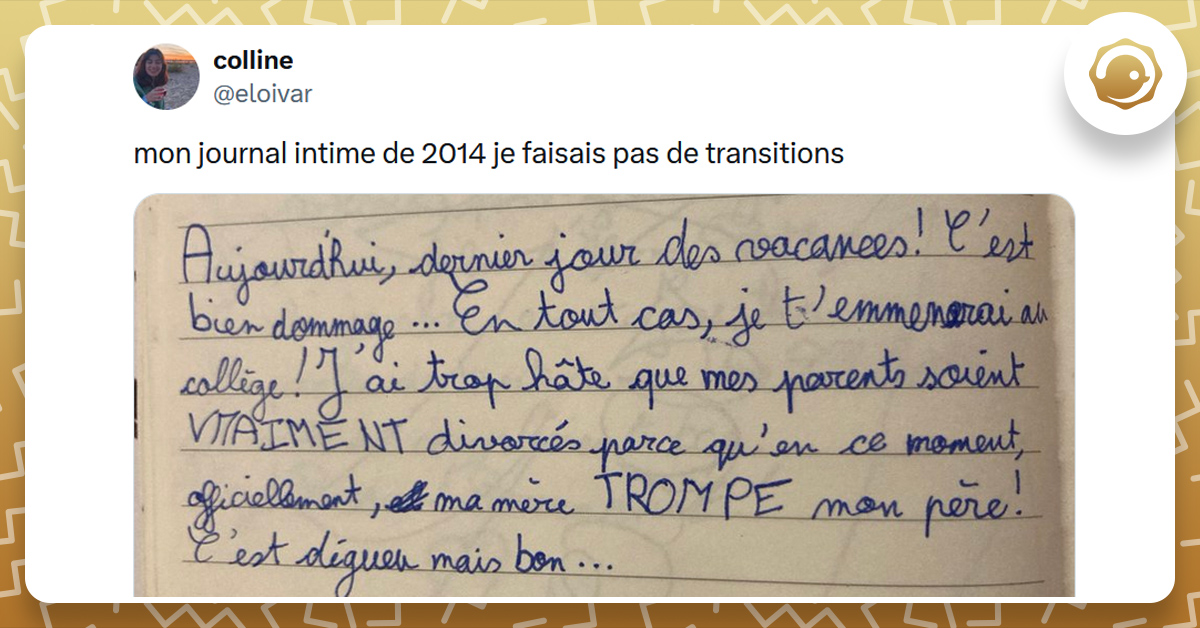 colline
@eloivar
mon journal intime de 2014 je faisais pas de transitions
Aujourd'hui, dernier jour des vacances! C'est
bien dommage ... En tout cas, je t'emmenerai au
collège! J'ai trop hâte que mes parents soient
VRAIMENT divorcés parce qu'en ce moment,
officiellement, ma mère TROMPE mon père!
C'est dégueu mais bon ...